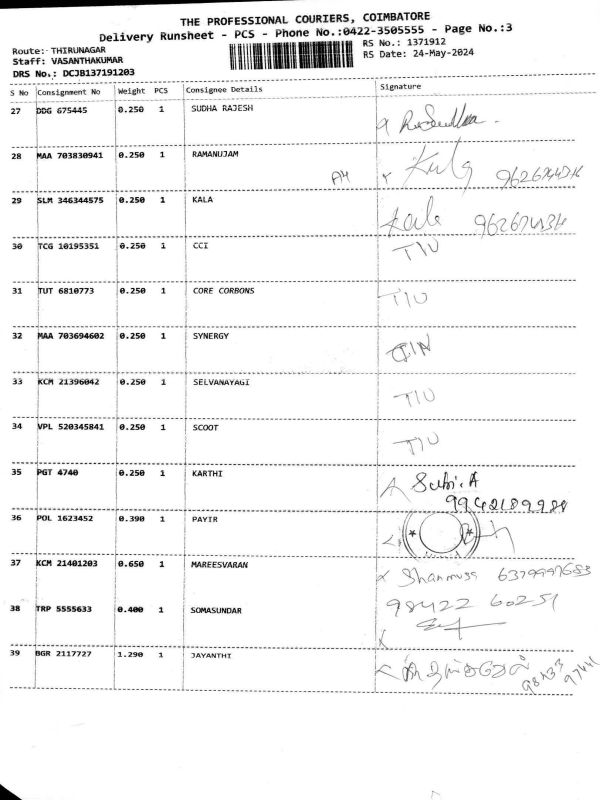 THE PROFESSIONAL COURIERS, COIMBATORE
Delivery Runsheet - PCS - Phone No.:0422-3505555 - Page No.:3
Route: THIRUNAGAR RS No.: 1371912
Staff: VASANTHAKUMAR RS Date: 24-May-2024
DRS No.: DCJB137191203
S No Consignment No Weight PCS Consignee Details Signature
27 DDG 675445 0.250 1 SUDHA RAJESH
28 MAA 703830941 0.250 1 RAMANUJAM
29 SLM 346344575 0.250 1 KALA Kala
30 TCG 10195351 0.250 1 CCI TIU
31 TUT 6810773 0.250 1 CORE CORBONS TIU
32 MAA 703694602 0.250 1 SYNERGY
33 KCM 21396042 0.250 1 SELVANAYAGI TIU
34 VPL 520345841 0.250 1 SCOOT TIU
35 PGT 4740 0.250 1 KARTHI Subi.A
36 POL 1623452 0.390 1 PAYIR
37 KCM 21401203 0.650 1 MAREESVARAN
38 TRP 5555633 0.400 1 SOMASUNDAR 98422 60251
39 BGR 2117727 1.290 1 JAYANTHI